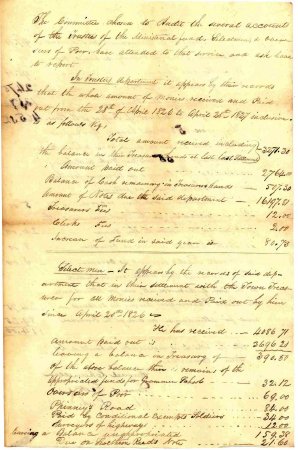 The Committee chosen to Audit the several accounts
of the Trustees of the Ministerial fund, Selectmen, & Overseers of Poor have attended to that service and ask leave
to report
In Trustees department it appears by their records
that the whole amount of monies received and Paid
out from the 28th of April 1826 to April 28th 1827 inclusive
as follows
Total amount received including
the balance in the Treasurers hands at last settlement
Amount paid out 2764.00
Balance of Cash remaining in Treasurers hands
Amount of Notes due the said department
Treasurers Fees 12.00
Clerks Fees 2.00
Increase of Fund in said year is 80.78
Selectmen - It appears by the records of said department that in their settlement with the Town Treasurer for all Monies received and Paid out by him
Since April 28th 1826
He has received 4086.71
Amount paid out is 3696.21
leaving a balance in Treasury of 390.50
of the above balance there remains of the
appropriated funds for Grammar School 32.12
Overseers of Poor 69.00
Road 84.00
Paid by Conditional Exempts Soldiers 34.00
Surveyors of highways 12.00
leaving a balance unappropriated 159.38
Due on Notes 21.60